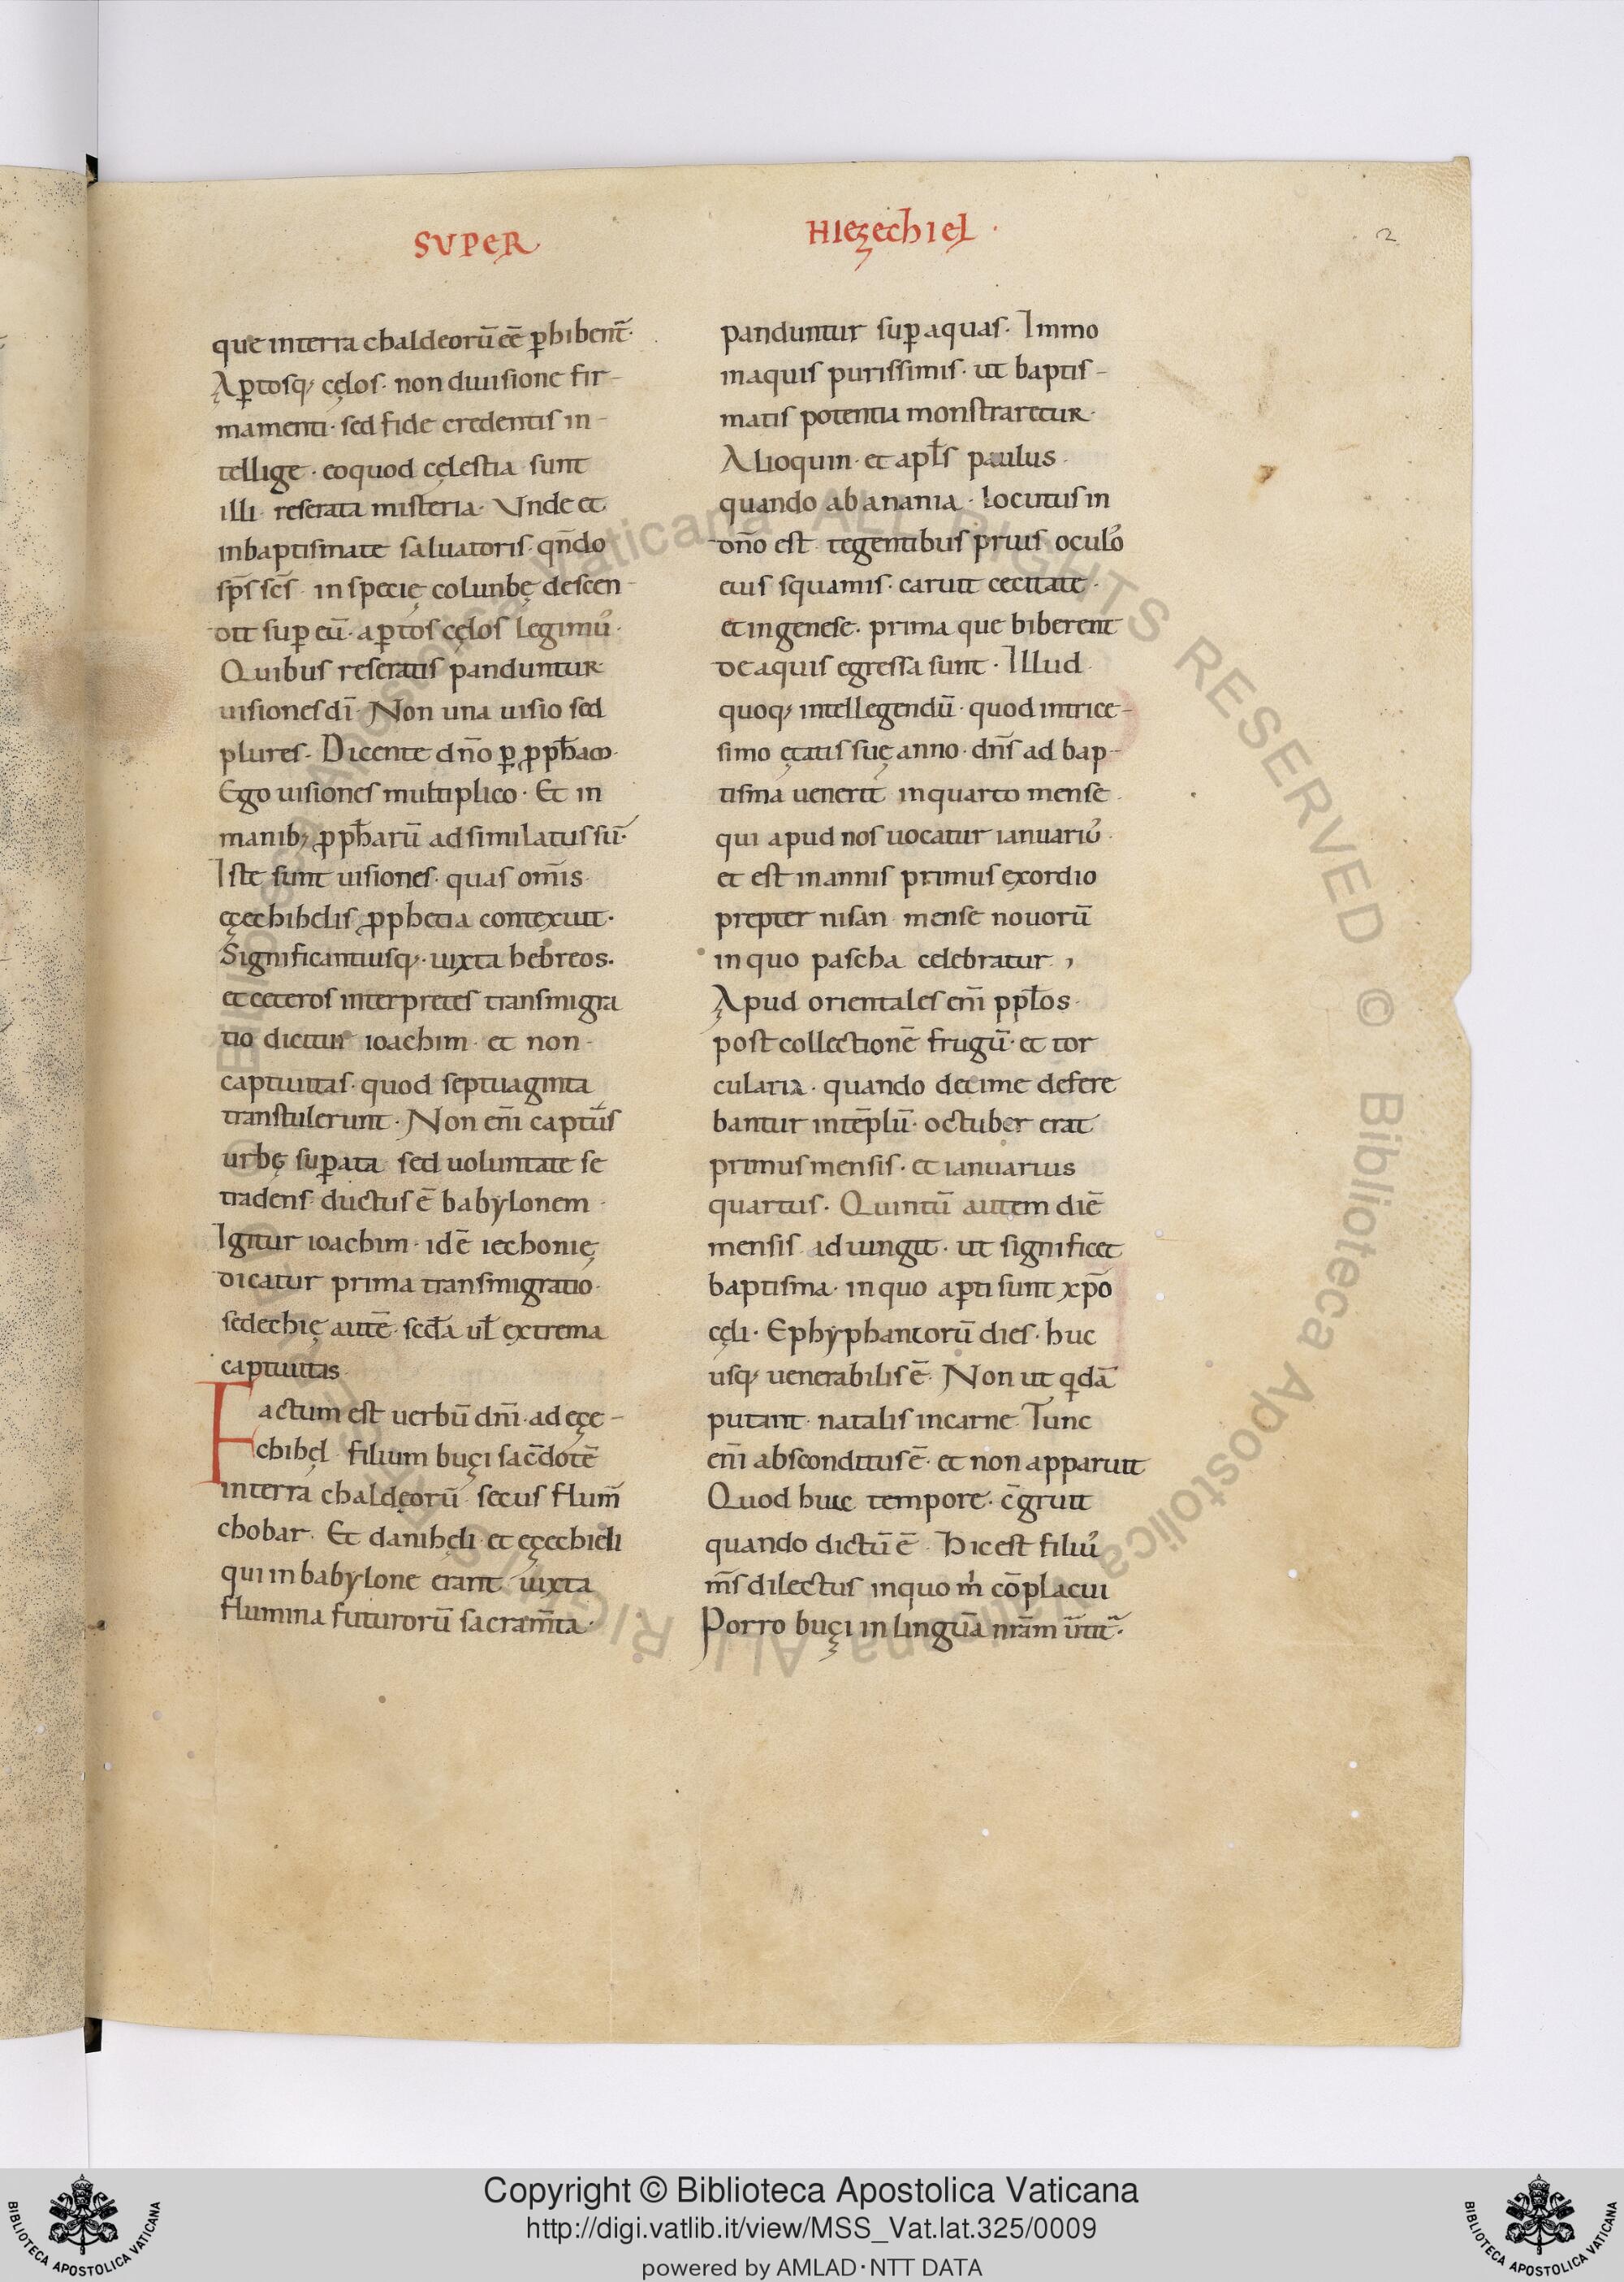 SUPER
HIEZECHIEL ·
2
que interra chaldeorū eē ꝑhibent᷑·
Aꝑtosq; cęlos· non diuisione fir-
mamenti· sed fide credentis in-
tellige· eoquod cęlestia sunt
illi reserata misteria· Unde et
inbaptismate saluatoris· qn̄do
sp̄s sc̄s in specię colunbę descen-
dit suꝑ eū· aꝑtos cęlos legimꝰ·
Quibus reseratis panduntur
uisionesdī· Non una uisio sed
plures· Dicente dn̄o ꝑ ꝓph̄am·
Ego uisiones multiplico· Et in
manib; ꝓph̄arū adsimilatus sū·
Iste sunt uisiones· quas om̄is
ęzechihelis ꝓphetia contexuit·
Significantiusq;· iuxta hebreos·
et ceteros interpretes transmigra
tio dicitur ioachim· et non-
captiuitas· quod septuaginta
transtulerunt· Non eni̅ captus
urbę suꝑata sed uoluntate se
tradens ductus ē babylonem
Igitur ioachim· idē iechonię
dicatur prima transmigratio·
sedechię autē· sed̄a ul̄ extrema
captiuitas
Factum est uerbū dn̄i· ad ęze-
chihęl filium buzi sac̄dotē
interra chaldęorū secus flum̄
chobar· Et danihęli· et ęzechieli
qui in babylone erant iuxta
flumina futurorū sacram̄ta·
panduntur suꝑ aquas· Immo
inaquis purissimis· ut baptis-
matis potentia monstraretur·
Alioquin· et apl̄s paulus
quando ab anania· locutus in
dn̄o est tegentibus prius oculꝰ
eius squamis· caruit cecitate·
et in genese· prima que biberent
de aquis egressa sunt· Illud
quoq; intellegendū· quod intrice-
simo ętatis suę anno· dn̄s ad bap-
tisma uenerit inquarto mense
qui apud nos uocatur ianuariꝰ·
et est inannis primus exordio
prepter nisan mense nouorū
in quo pascha celebratur ,
Apud orientales eni̅ ppl̄os·
post collectionē frugū· et tor
cularia· quando decime defere
bantur intēplū· octuber erat
primus mensis· et ianuarius
quartus· Quintū autem diē
mensis adiungit· ut significet
baptisma· in quo aꝑti sunt xp̄o
cęli· Ephyphantorū dies· huc
usq; uenerabilis ē· Non ut qdā
putant· natalis incarne· Tunc
eni̅ absconditus ē· et non apparuit
Quod huic tempore· c̄gruit
quando dictū ē· Hic est filiꝰ
m̄s dilectus inquo m̄ cōplacui
Porro buzi in linguā nr̄am
Copyright © Biblioteca Apostolica Vaticana
http://digi.vatlib.it/view/MSS_Vat.lat.325/0009
powered by AMLAD·NTT DATA
BIBLIOTECA APOSTOLICA VATICANA
BIBLIOTECA APOSTOLICA VATICANA